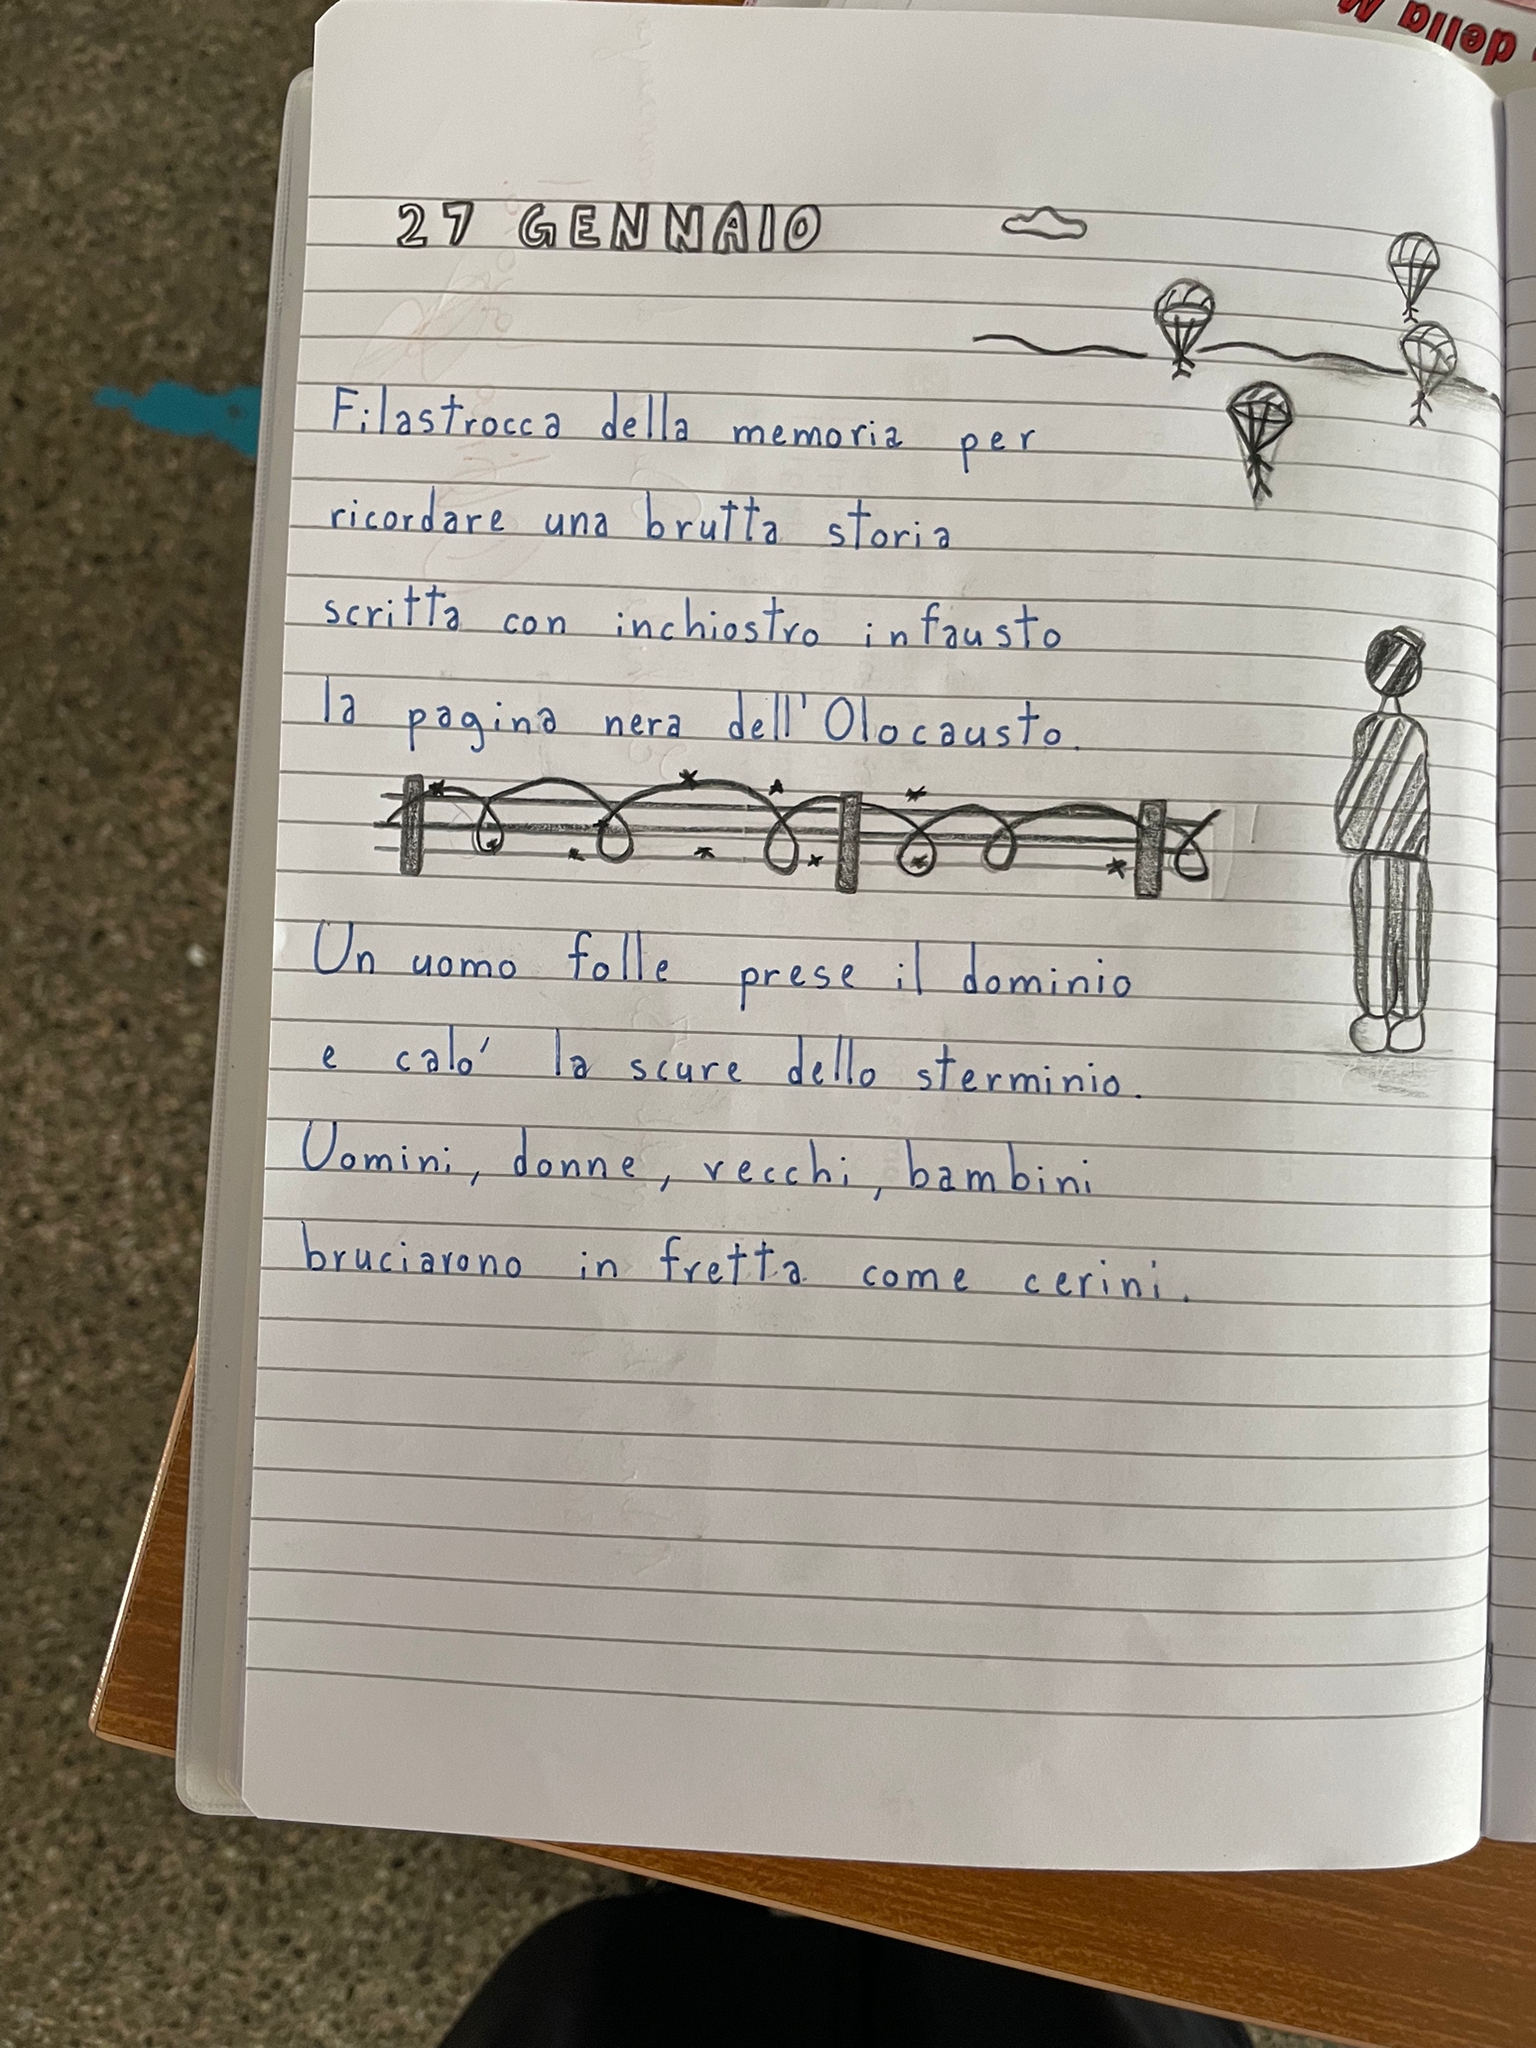 della M
27 GENNAIO
Filastrocca della memoria per
ricordare una brutta storia
scritta con inchiostro infausto
la pagina nera dell'Olocausto.
Un uomo folle prese il dominio
e calo' la scure dello sterminio.
Uomini, donne, vecchi, bambini
bruciarono in fretta come cerini.